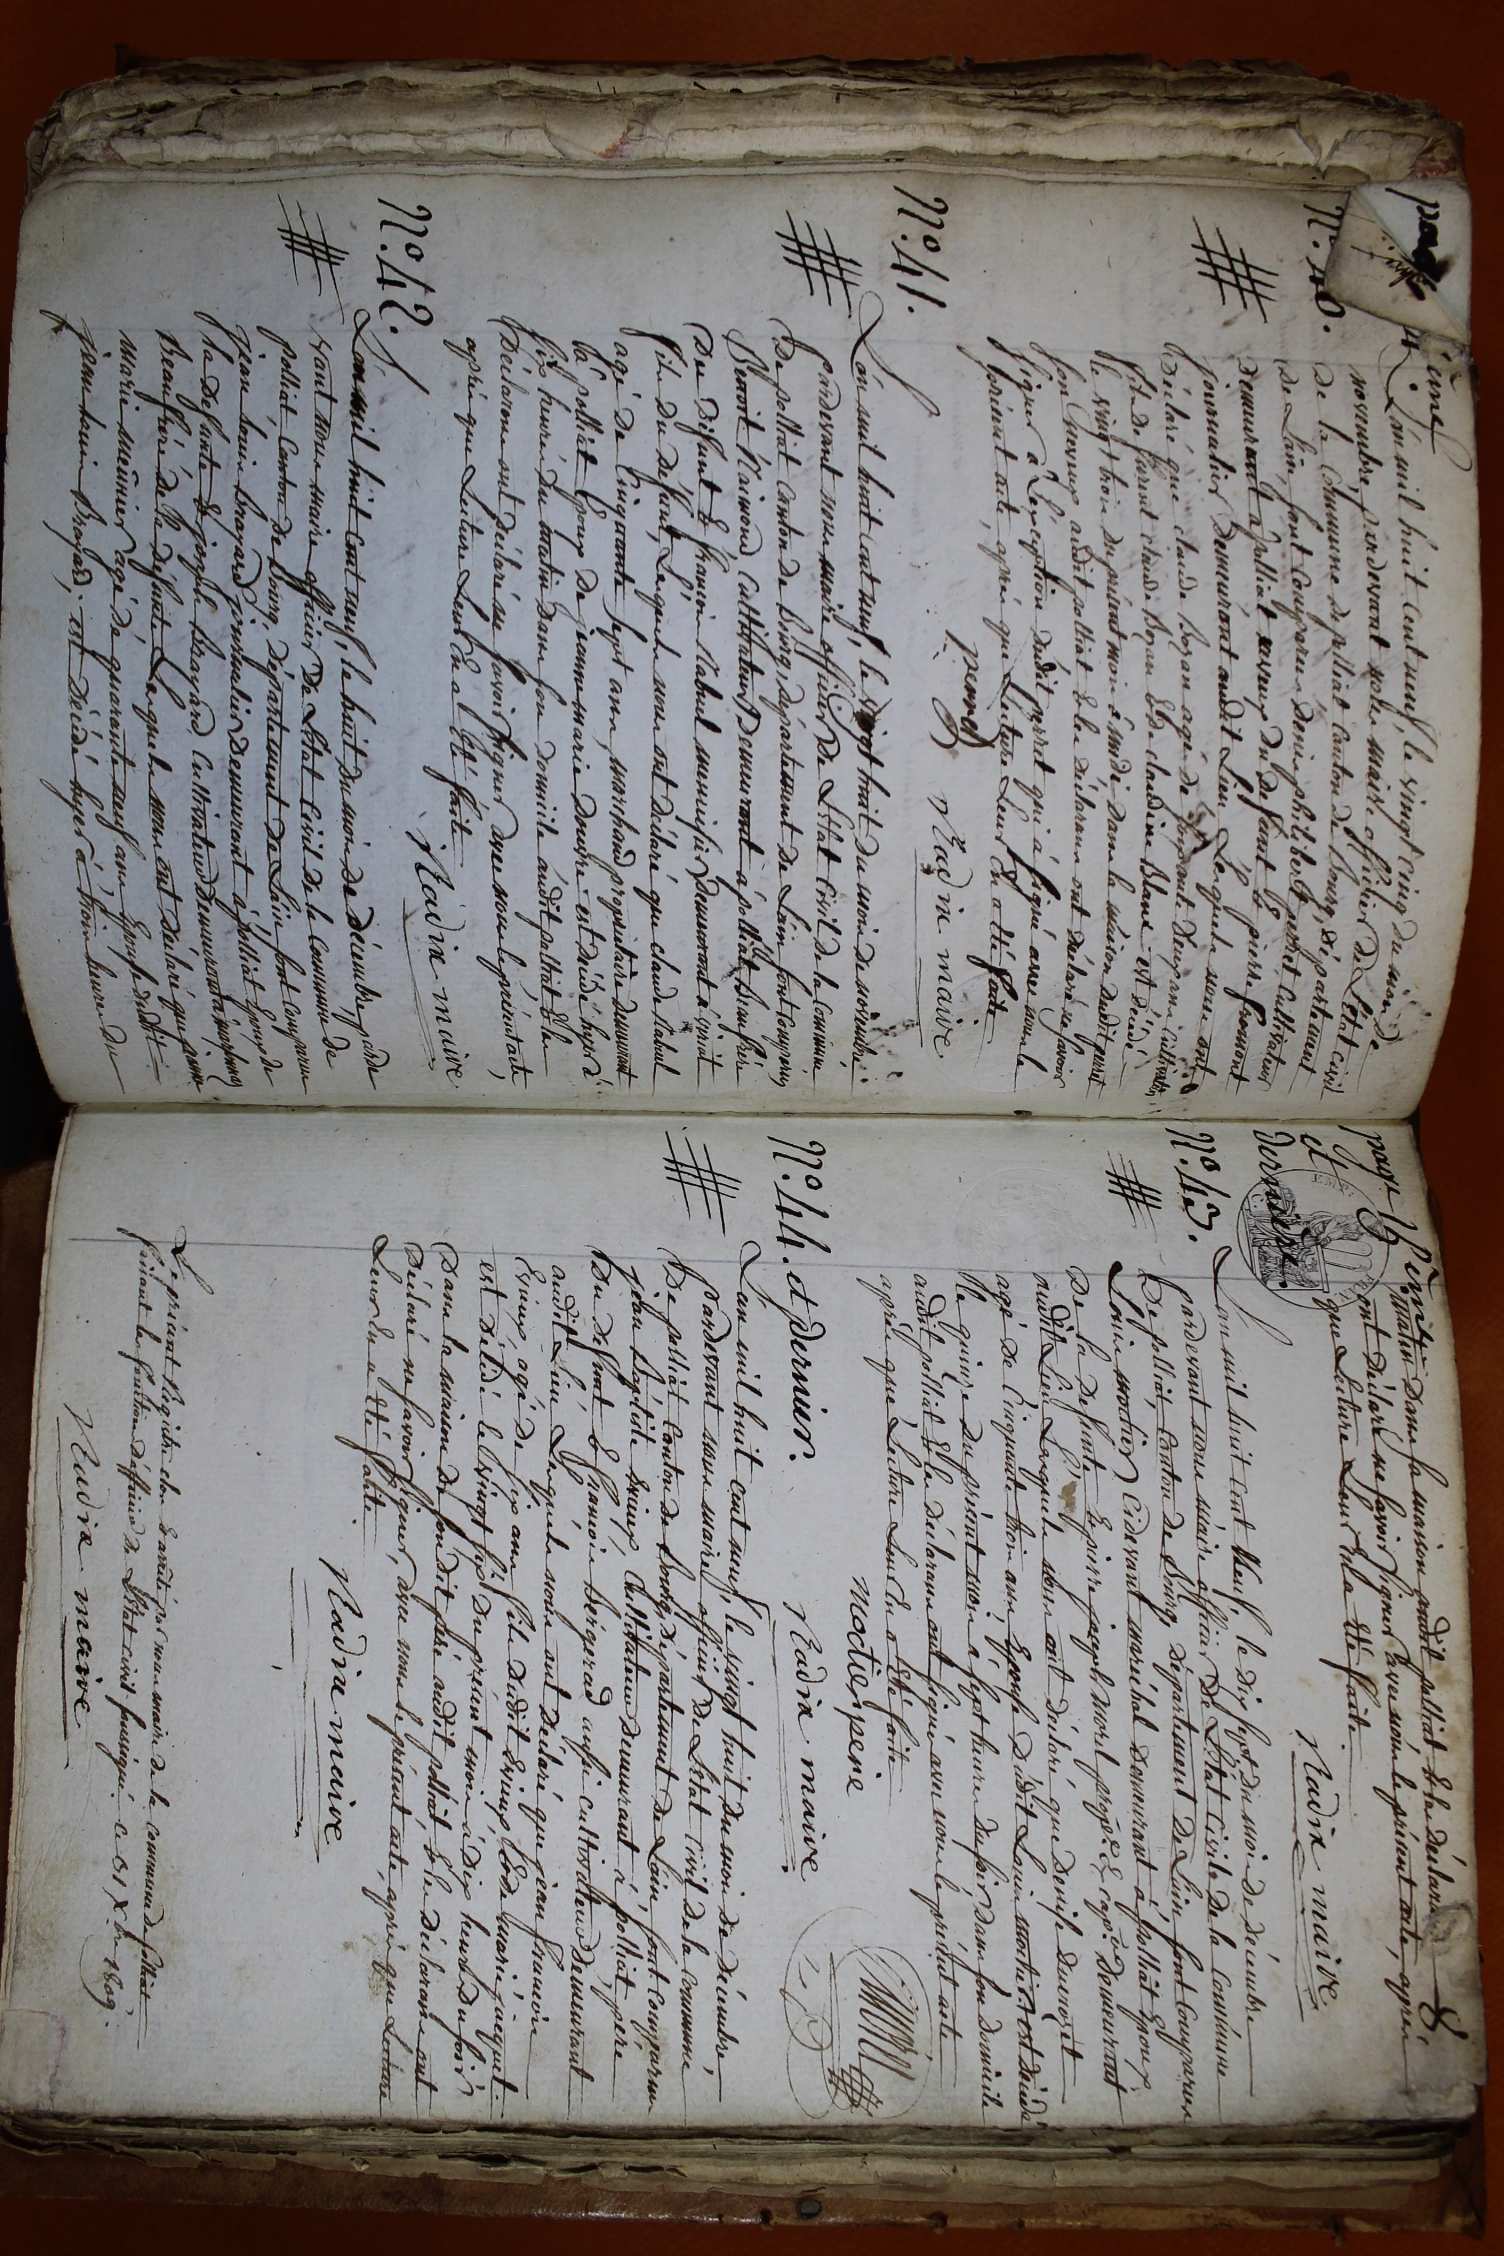 N.º 40.
L'an mil huit cent neuf, le vingt cinq du mois de
novembre, pardevant nous maire officier de L'état civil
de la Commune de polliat Canton de bourg, département
de Lain, sont Comparus denis philibert perret Cultivateur
demeurant à polliat neveux du defunt & pierre fromont
journalier demeurant audit Lieu Lesquels nous ont
déclaré que claude bozon agé de deux ans Cultivateur
fils de furent claude bozon & de claudine blanc est décédé
le vingt trois du présent mois à midi dans la maison dudit perret
son neveux audit polliat & les déclarans ont déclaré ne savoir
signer à L'exception dudit perret qui à signé avec nous le
présent acte, après que Lecture Leur En a été faite
perret Nadix maire
N.º 41.
L'an mil huit cent neuf, le vingt huit du mois de novembre
pardevant nous maire officier de L'état Civil de la Commune
de polliat Canton de bourg, département de Lain sont Comparus
Benoit Raimond Cultivateur demeurant à polliat, beaufrère
du defunt & francois Nabul menuisier demeurant à
fils du defunt, Lesquels nous ont déclaré que claude Nabul
agé de Cinquante sept ans, marchand propriétaire demeurant
à polliat Epoux de jeanne marie est décédé hyer à
six heures du matin dans son domicile audit polliat & les
Déclarans ont déclaré ne savoir signer avec nous le présent acte,
après que Lecture Leur En a Eté faite
Nadix maire
N.º 42.
L'an mil huit cent neuf, le huit du mois de décembre, parde
vant nous maire officier De L'état Civil de la Commune de
polliat Canton de bourg, département de Lain sont Comparus
jean louis brayard journalier demeurant à polliat Epoux de
la defunte & joseph brayard Cultivateur demeurant
beaufrère de la defunte Lesquels nous ont déclaré que
marie meûnier agée de quarante neuf ans Epouse dudit
jean louis brayard, est décédée hyer à trois heures du
page 15 Ieme
et
dernière.
8
matin Dans sa maison audit polliat & les déclarans
ont déclaré ne savoir signer avec nous le présent acte, après
que Lecture Leur En a Eté faite
Nadix maire
N.º 43.
L'an mil huit Cent Neuf, le dix sept du mois de décembre
pardevant nous maire officier De L'état Civile de la Commune
De polliat, Canton de bourg, département De Lain sont Comparus
Louis moctier, Cidevant maréchal demeurant à polliat Epoux
De la defunte & pierre joseph morel propre. demeurant
audit Lieu Lesquels nous ont déclaré que denise
agé de Cinquante trois ans Epouse dudit Louis moctier est décédé
le quinze du présent mois à sept heures du soir dans son domicile
audit polliat & les déclarans ont signé avec nous le présent acte
après que Lecture Leur En a Eté faite
moctier pere
Nadix maire
N.º 44. et dernier.
L'an mil huit cent neuf, le vingt huit du mois de décembre
pardevant nous maire officier de L'état Civil de la Commune
De polliat Canton de bourg, département de Lain sont Comparus
jean baptiste Cultivateur demeurant à polliat, pere
du defunt & francois bergerad aussi cultivateur demeurant
audit Lieu Lesquels nous ont déclaré que jean francois
agé de six ans fils dudit & de marie
est décédé le vingt six du présent mois à dix heures du soir
Dans la maison de son dit père audit polliat & les déclarans ont
Déclaré ne savoir signer, avec nous le présent acte, après que Lecture
Leur En a Eté faite
Nadix maire
Le présent Registre clos & arrêté par nous maire de la commune de polliat
faisant les fonctions d'officier de L'état civil soussigné. ce 31 Xbre 1809.
Nadix maire